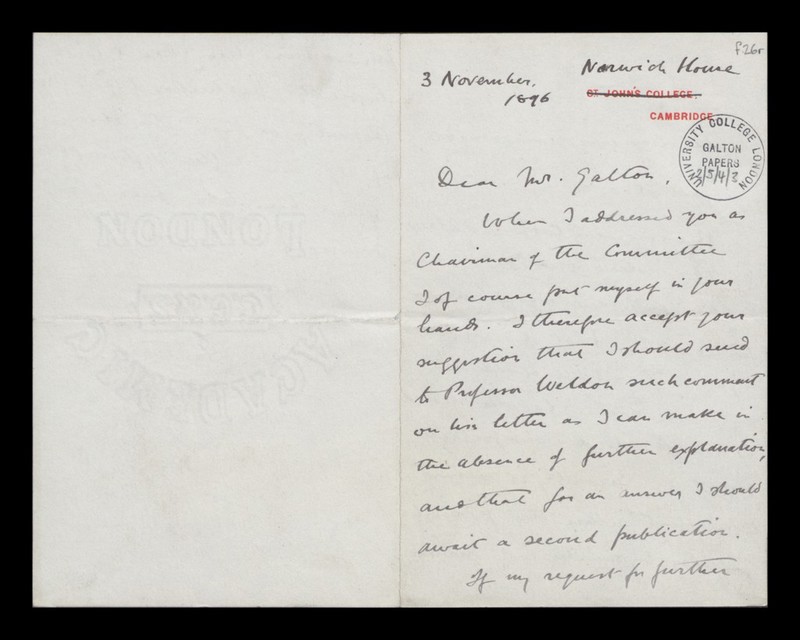 f26r
3 November.
1896
Norwich House
ST JOHN'S COLLEGE,
CAMBRIDGE
UNIVERSITY COLLEGE LONDON
GALTON
PAPERS
2/5/4/3
Dear Mr. Galton,
When I addressed you as
Chairman of the Committee
I of course put myself in your
hands. I therefore accept your
suggestion that I should send
to Professor Weldon such comment
on his letter as I can make in
the absence of further explanation,
and that for an answer I should
await a second publication.
If my request for further
LONDON